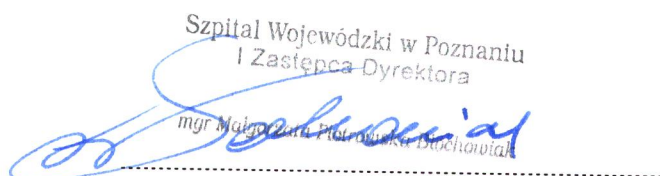 Szpital Wojewódzki w Poznaniu
I Zastępca Dyrektora
mgr Małgorzata Piotrowska Błochowiak